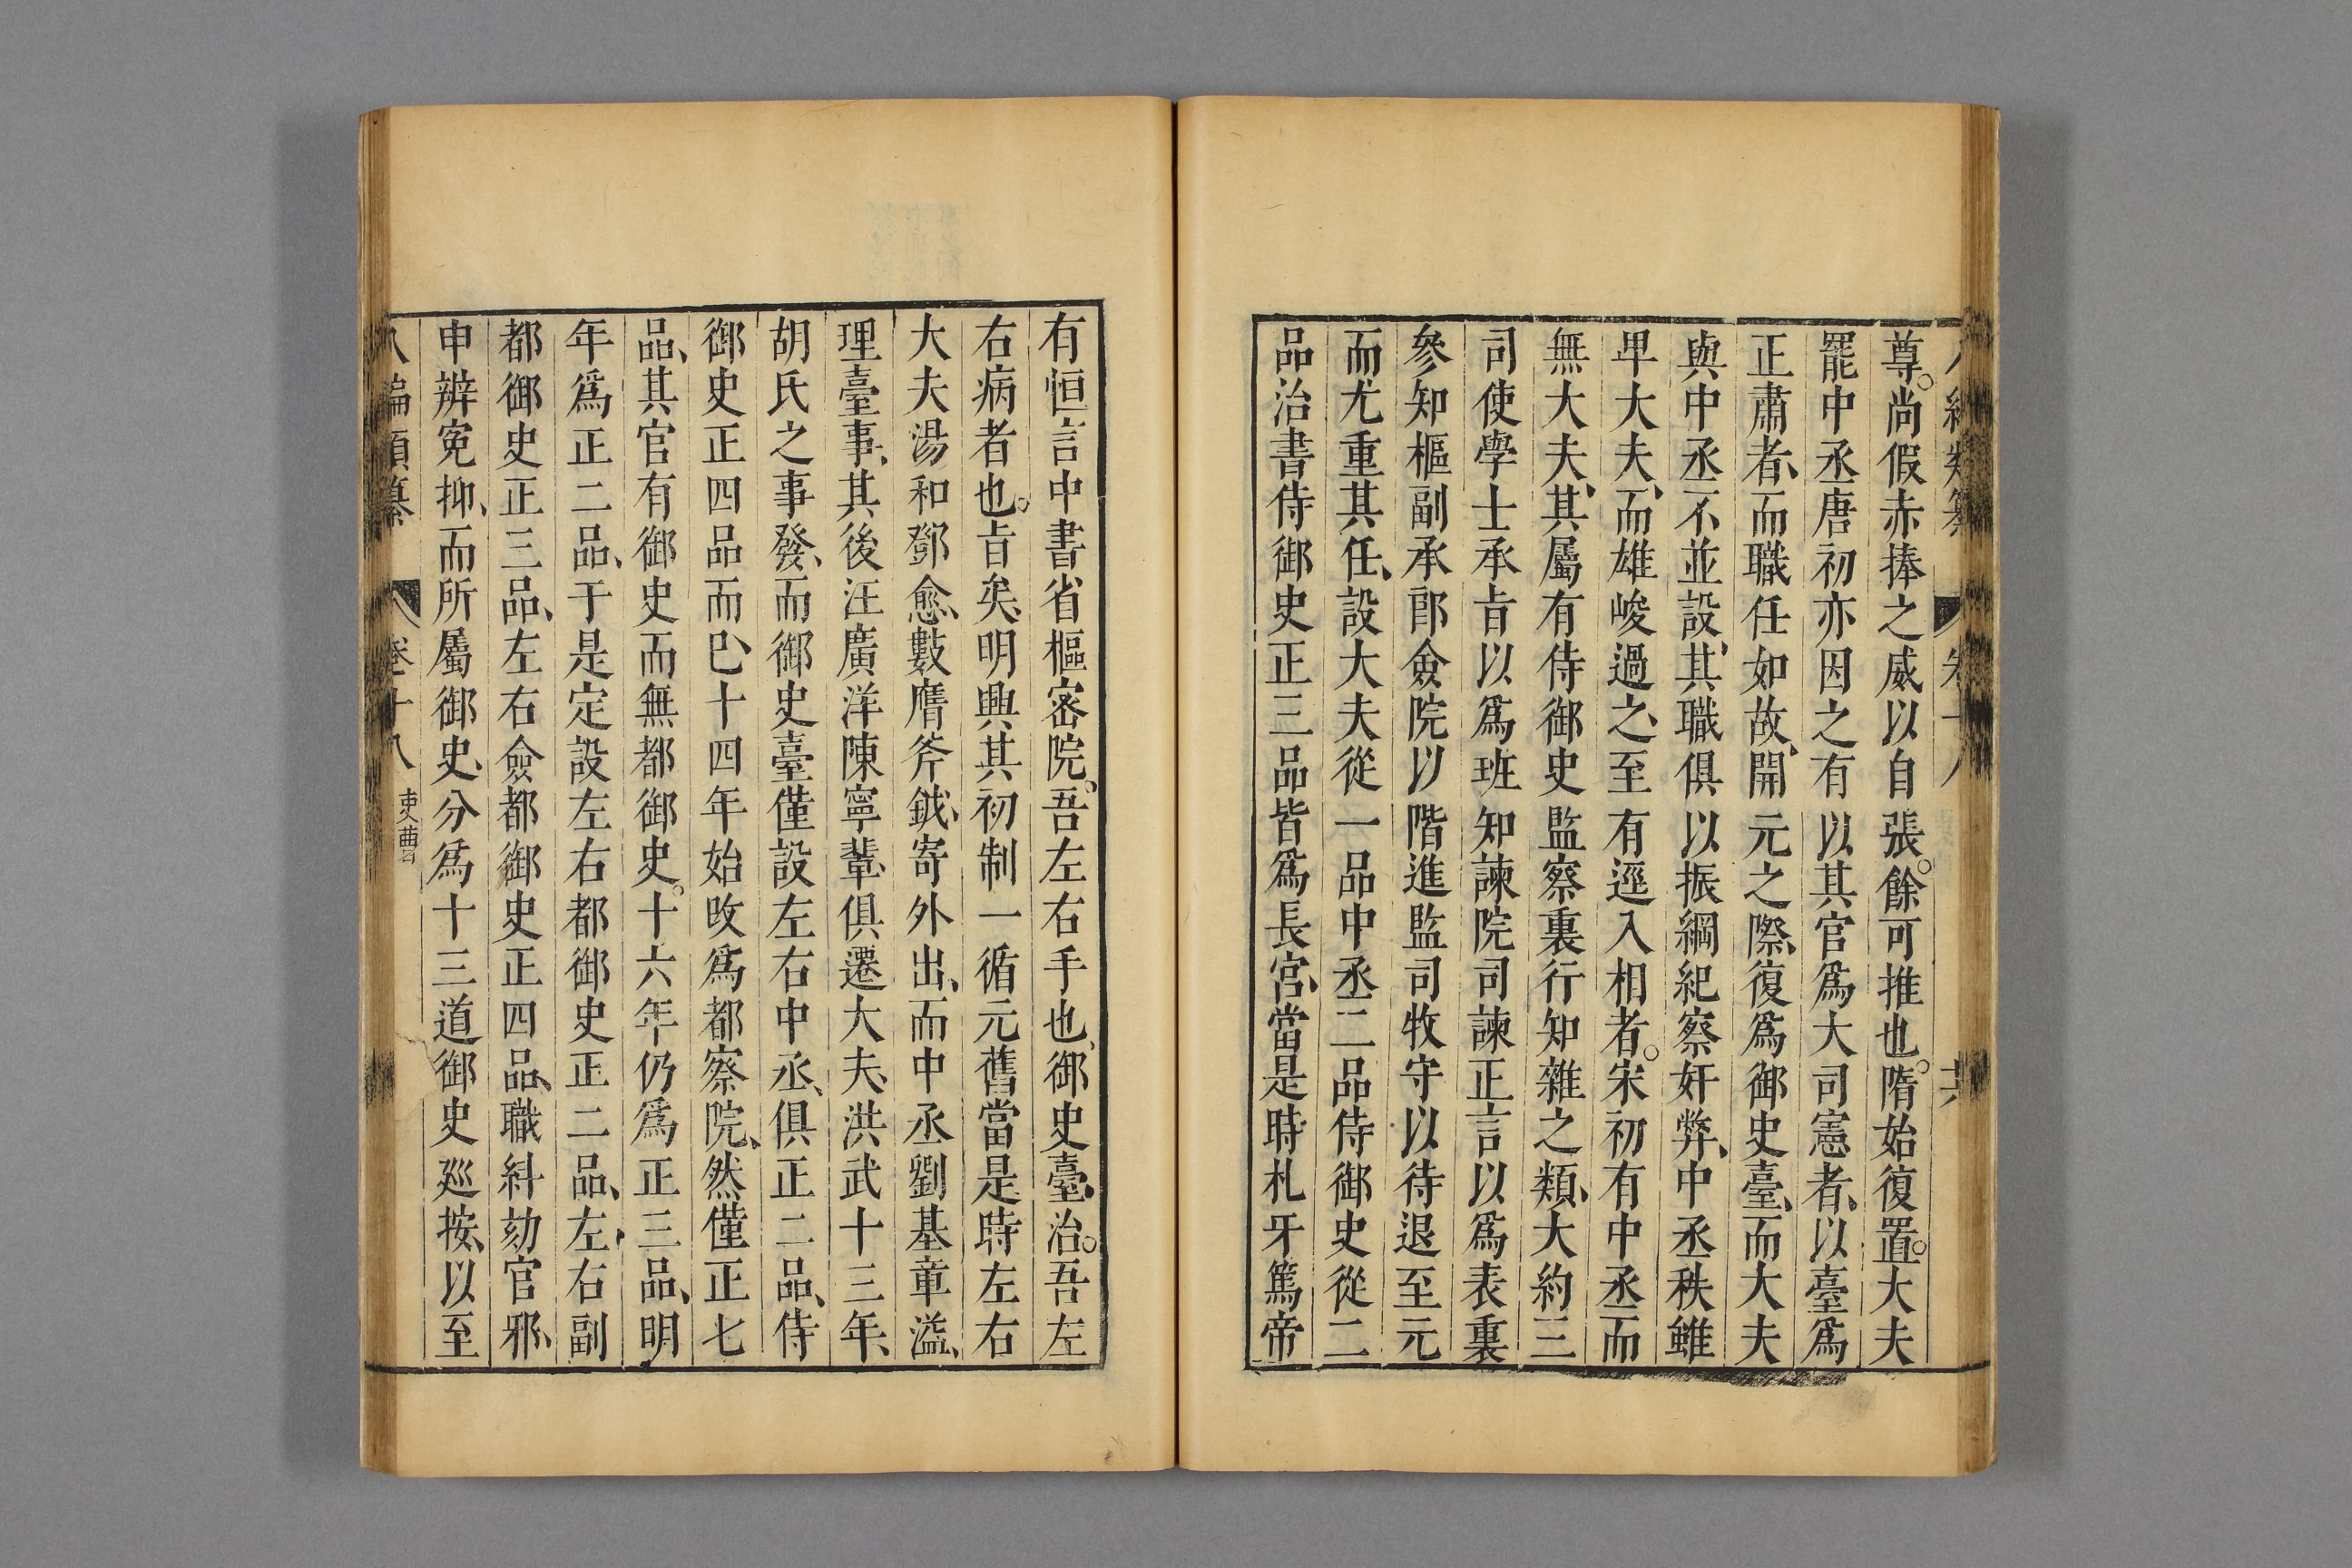 尊。尚假赤捧之威以自張。餘可推也。隋始復置。大夫
罷中丞唐初亦因之有以其官爲大司憲者、以臺爲
正肅者、而職任如故、開元之際、復爲御史臺、而大夫
與中丞不並設、其職俱以振綱紀察奸弊、中丞秩雖
卑大夫、而雄峻過之、至有逕入相者。宋初有中丞而
無大夫、其屬有侍御史監察裏行知雜之類、大約三
司使學士承旨以爲班知諫院司諫正言以爲表裏
參知樞副承郎僉院以階進監司牧守以待退至元
而尤重其任、設大夫從一品中丞二品侍御史從二
品治書侍御史正三品皆爲長官、當是時札牙篤帝
有恒言中書省樞密院、吾左右手也、御史臺、治。吾左
右病者也。旨矣、明興其初制一循元舊當是時左右
大夫湯和鄧愈、數膺斧鉞、寄外出、而中丞劉基章溢、
理臺事、其後汪廣洋陳寧輩、俱遷大夫、洪武十三年、
胡氏之事發、而御史臺僅設左右中丞、俱正二品、侍
御史正四品而巳、十四年始改爲都察院、然僅正七
品、其官有御史而無都御史。十六年仍爲正三品、明
年爲正二品、于是定設左右都御史正二品、左右副
都御史正三品、左右僉都御史正四品、職糾劾官邪、
申辨冤抑、而所屬御史、分爲十三道御史廵按、以至
八編類纂 卷十八 吏曹